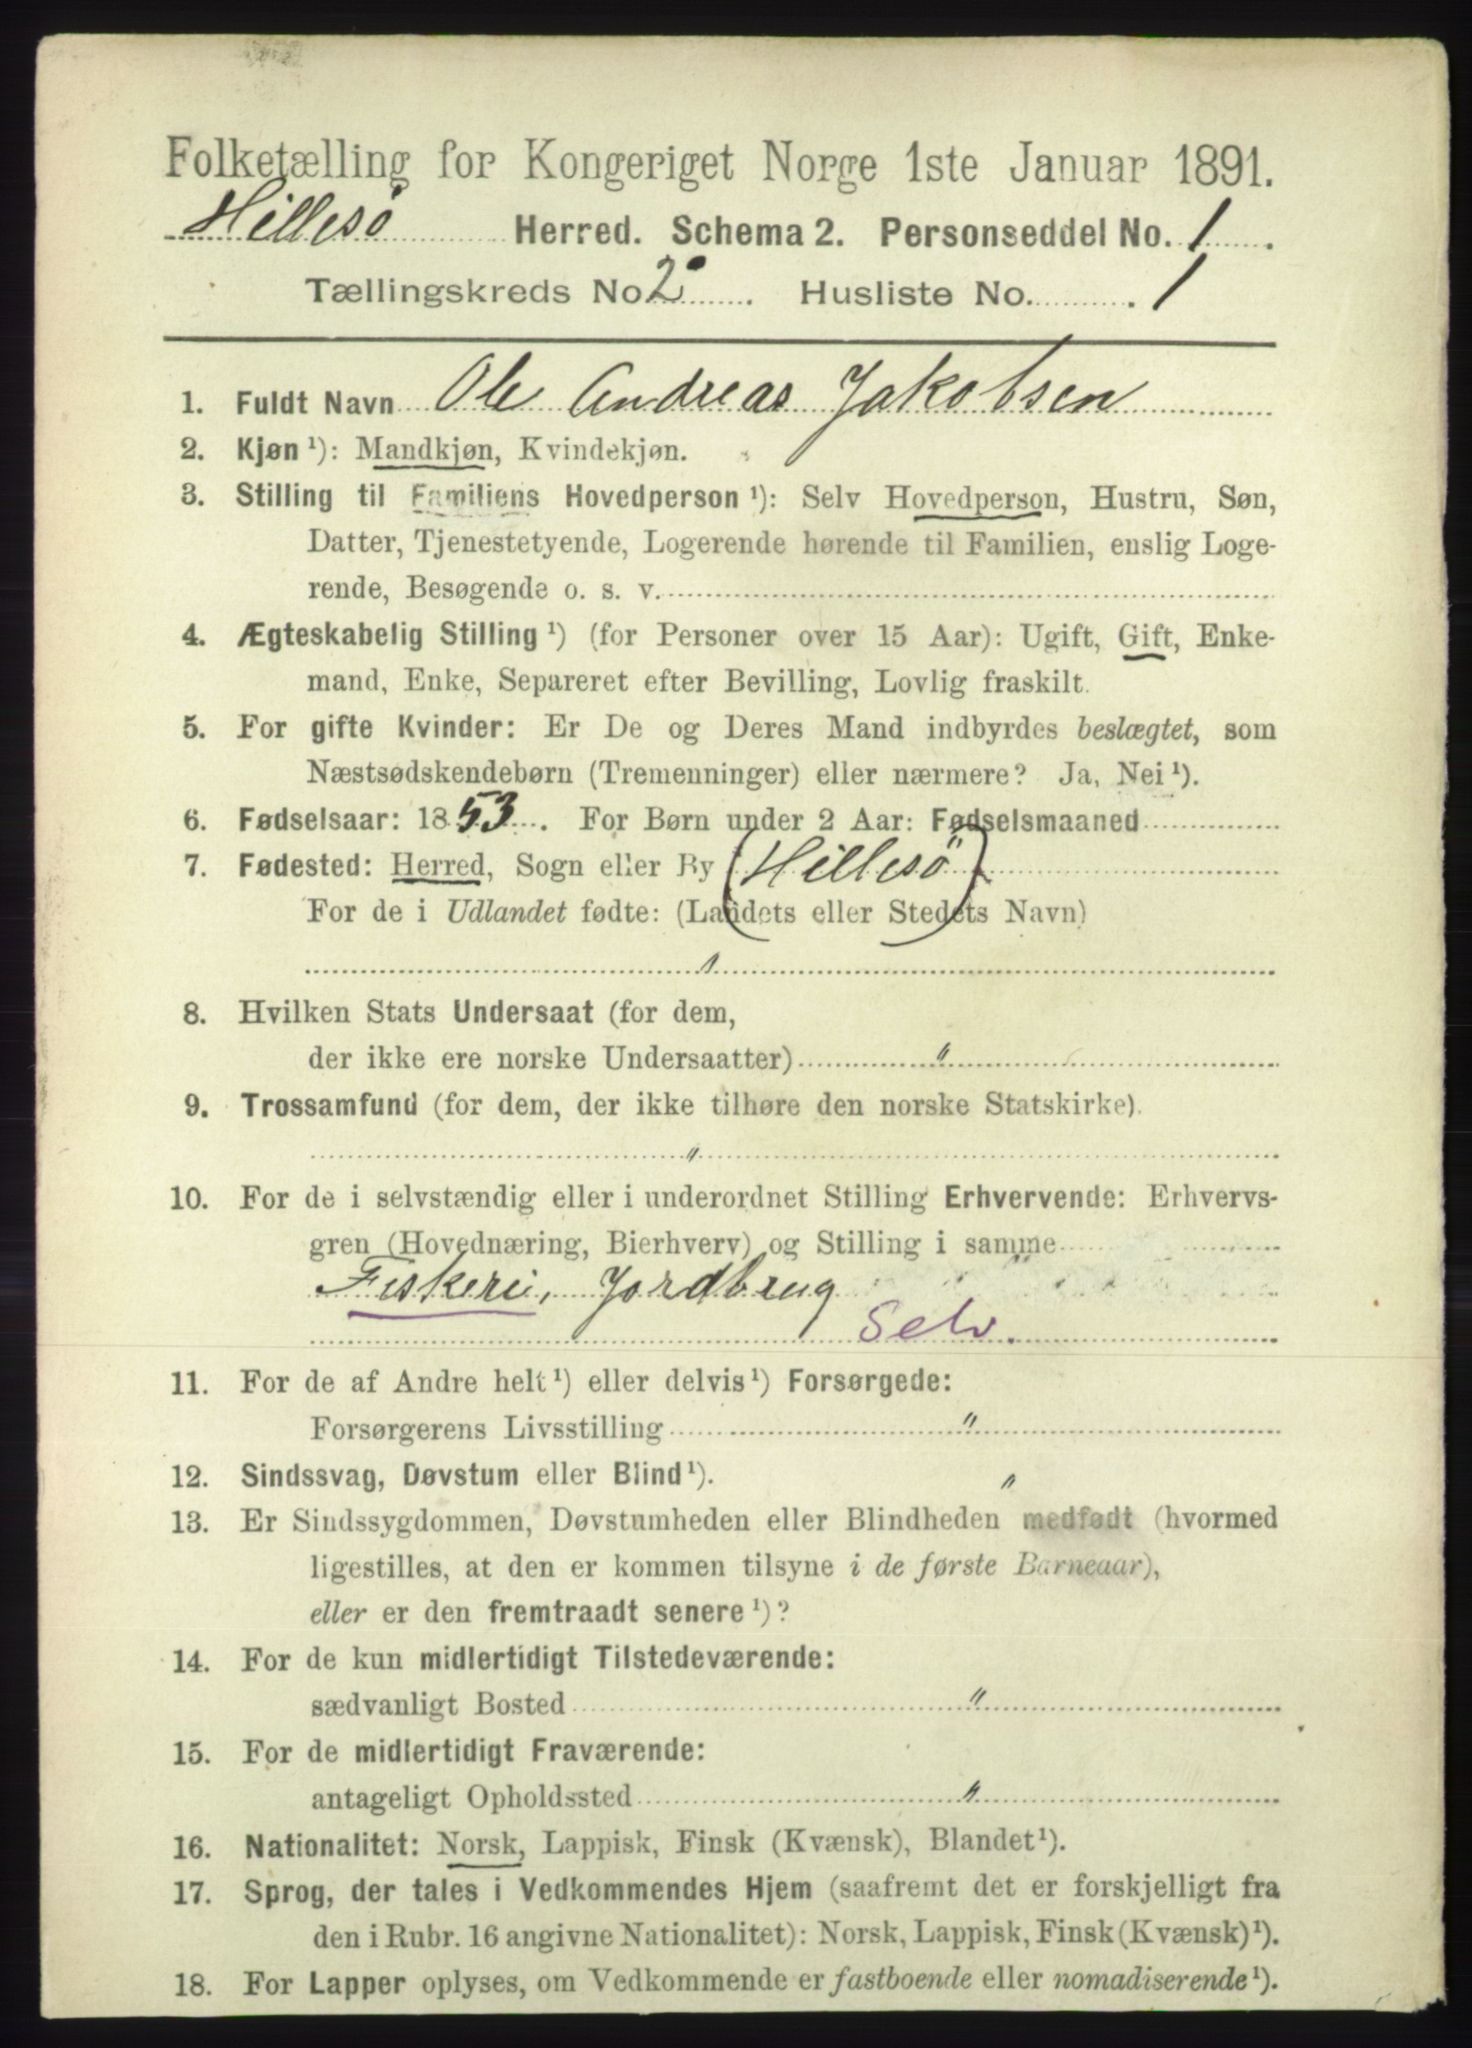 Folketælling for Kongeriget Norge 1ste Januar 1891.
Hillesö Herred. Schema 2. Personseddel No. 1.
Tællingskreds No. 2. Husliste No. 1.
1. Fuldt Navn Ole Andreas Jakobsen
2. Kjøn ¹): Mandkjøn, Kvindekjøn.
3. Stilling til Familiens Hovedperson ¹): Selv Hovedperson, Hustru, Søn,
Datter, Tjenestetyende, Logerende hørende til Familien, enslig Loge-
rende, Besøgende o. s. v.
4. Ægteskabelig Stilling ¹) (for Personer over 15 Aar): Ugift, Gift, Enke-
mand, Enke, Separeret efter Bevilling, Lovlig fraskilt.
5. For gifte Kvinder: Er De og Deres Mand indbyrdes beslægtet, som
Næstsødskendebørn (Tremenninger) eller nærmere? Ja, Nei ¹).
6. Fødselsaar: 1853. For Børn under 2 Aar: Fødselsmaaned
7. Fødested: Herred, Sogn eller By (Hillesö)
For de i Udlandet fødte: (Landets eller Stedets Navn)
8. Hvilken Stats Undersaat (for dem,
der ikke ere norske Undersaatter) "
9. Trossamfund (for dem, der ikke tilhøre den norske Statskirke).
"
10. For de i selvstændig eller i underordnet Stilling Erhvervende: Erhvervs-
gren (Hovednæring, Bierhverv) og Stilling i samme
Fiskeri, Jordbrug
Selv.
11. For de af Andre helt ¹) eller delvis ¹) Forsørgede:
Forsørgerens Livsstilling "
12. Sindssvag, Døvstum eller Blind ¹). "
13. Er Sindssygdommen, Døvstumheden eller Blindheden medfødt (hvormed
ligestilles, at den er kommen tilsyne i de første Barneaar),
eller er den fremtraadt senere ¹)?
14. For de kun midlertidigt Tilstedeværende:
sædvanligt Bosted "
15. For de midlertidigt Fraværende:
antageligt Opholdssted "
16. Nationalitet: Norsk, Lappisk, Finsk (Kvænsk), Blandet ¹).
17. Sprog, der tales i Vedkommendes Hjem (saafremt det er forskjelligt fra
den i Rubr. 16 angivne Nationalitet): Norsk, Lappisk, Finsk (Kvænsk) ¹).
18. For Lapper oplyses, om Vedkommende er fastboende eller nomadiserende ¹).